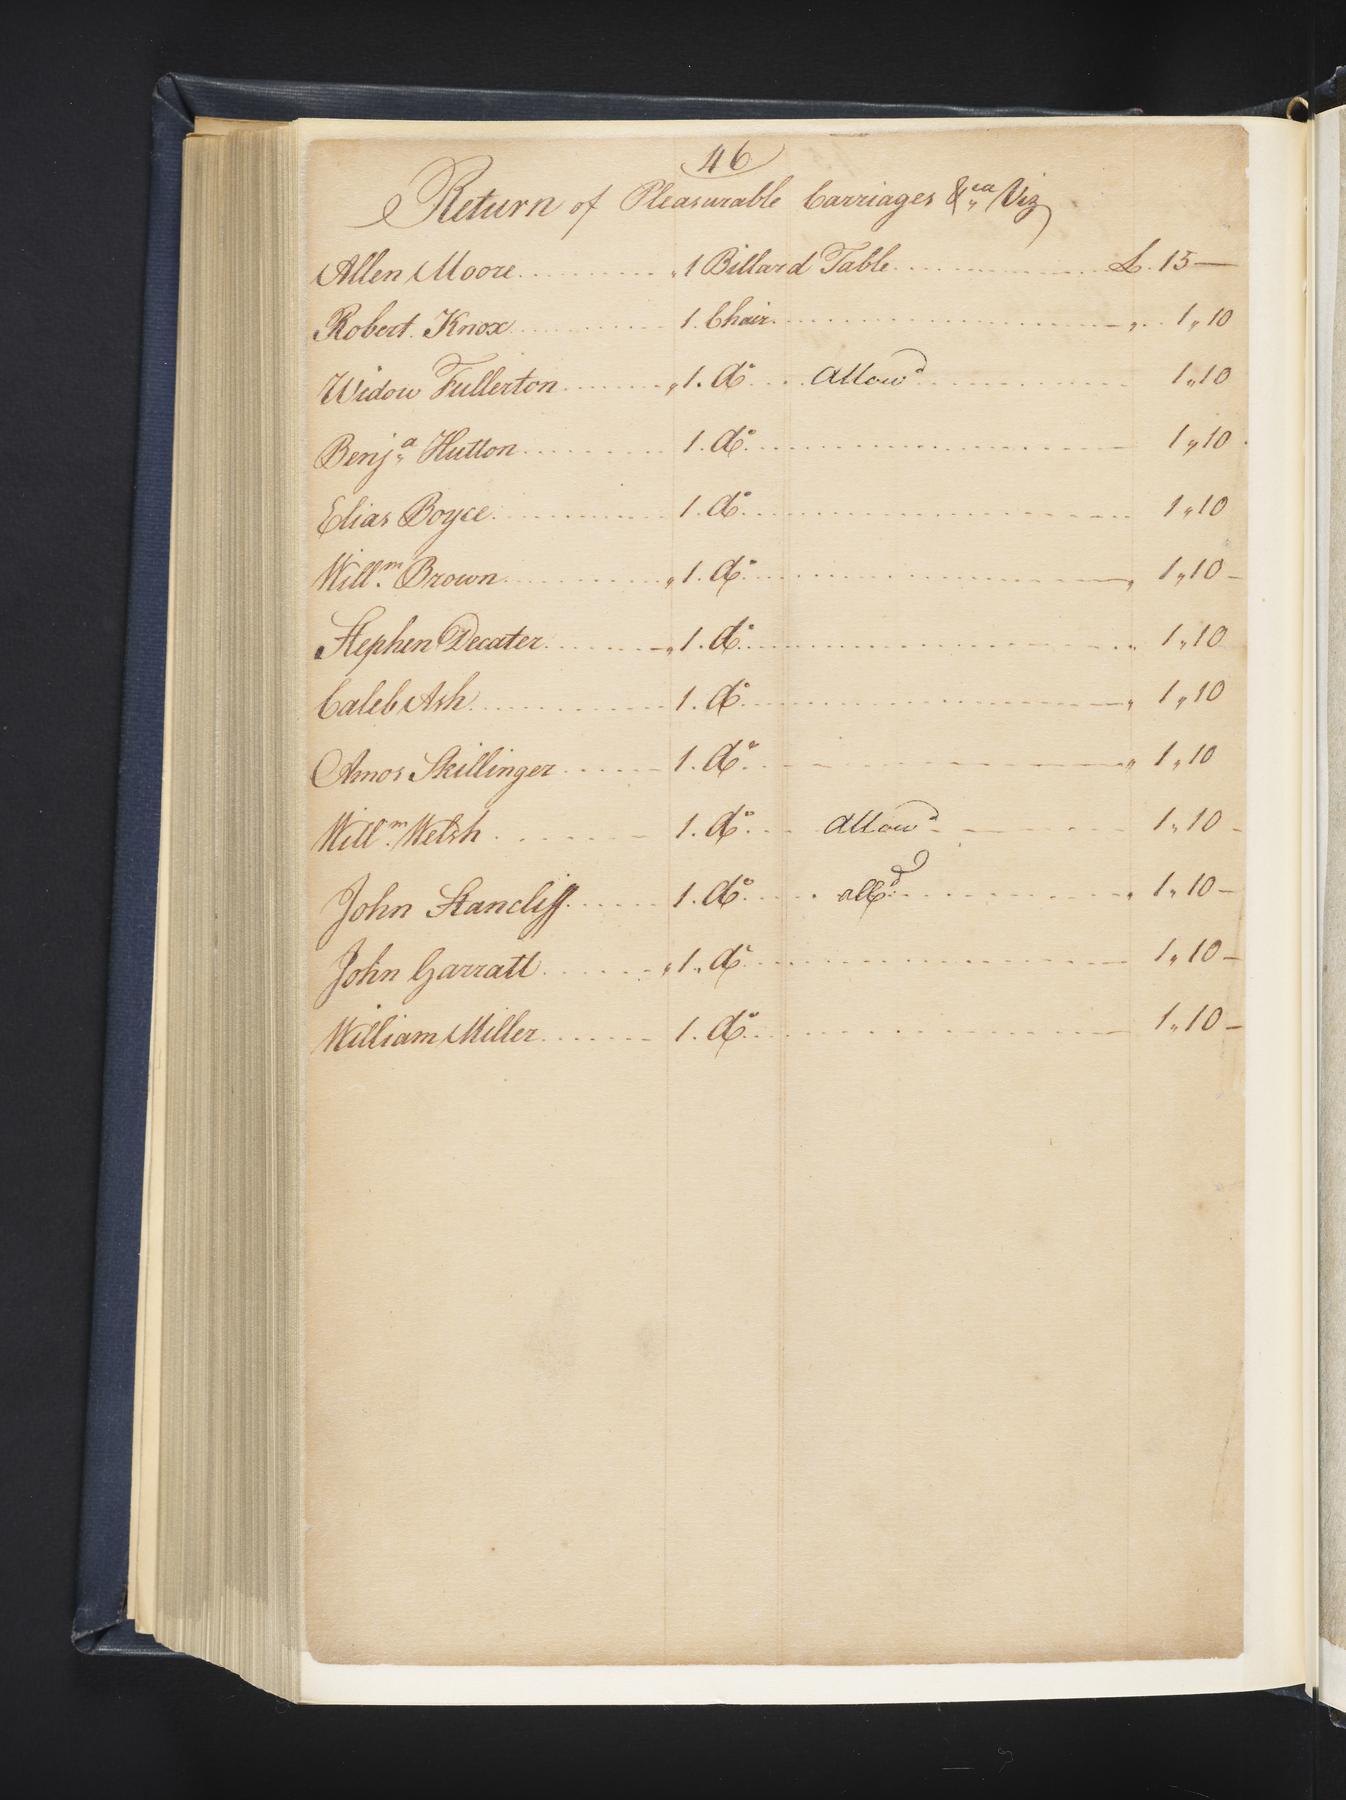 46
Return of Pleasurable Carriages &ca Viz
Allen Moore .......... „1 Billard Table .......... £. 15 —
Robert Knox .......... 1. Chair .......... „ 1„10
Widow Fullerton .......... „1. do .... Allowd .......... 1„10
Benja Hutton .......... 1. do .......... 1„10
Elias Boyce .......... 1. do .......... 1„10
Willm Brown .......... „1. do .......... „ 1„10 —
Stephen Decater .......... „1. do .......... „ 1„10
Caleb Ash .......... 1. do .......... „ 1„10
Amos Skillinger .......... 1. do .......... „ 1„10
Willm Welsh .......... 1. do .... Allowd .......... 1„10 —
John Stancliff .......... 1. do .... alld .......... „ 1„10 —
John Garratt .......... „1„ do .......... 1„10 —
William Miller .......... 1. do .......... 1„10 —